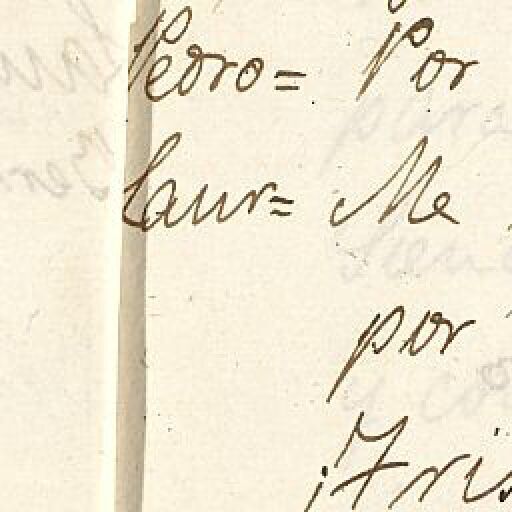 Pedro= Por
Laur= Me
por
¡Tris